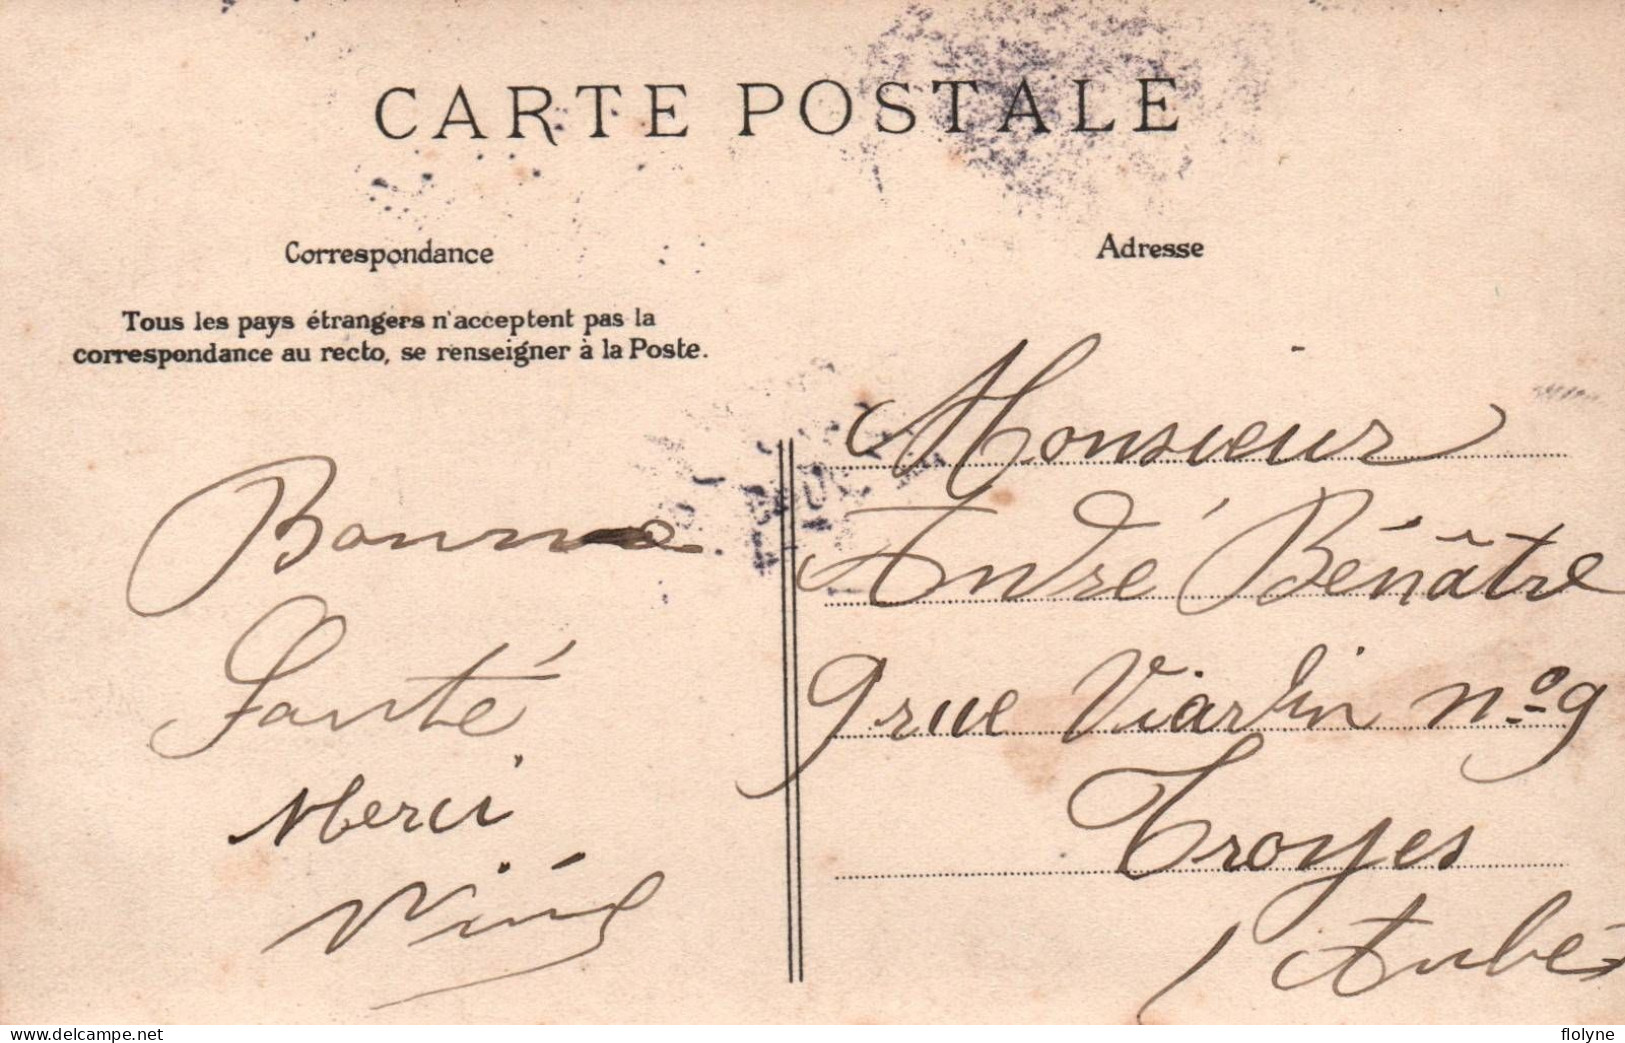 CARTE POSTALE
Correspondance
Tous les pays étrangers n'acceptent pas la
correspondance au recto, se renseigner à la Poste.
Bonne
Santé
Merci
Adresse
Monsieur
André Bénâtre
9 rue Viardin nº 9
Troyes
(Aube)
www.delcampe.net
flolyne